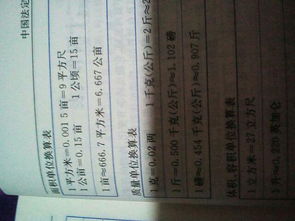 中国法定
面积单位换算表
1平方米=0.001 5亩=9平方尺
1公亩=0.15亩 1公顷=15亩
1亩≈666.7平方米≈6.667公亩
质量单位换算表
1克=0.02两 1千克(公斤)=2斤≈2
1斤=0.500千克(公斤)≈1.102磅
1磅≈0.454千克(公斤)≈0.907斤
体积、容积单位换算表
1立方米=27立方尺
1升≈0.220英加仑